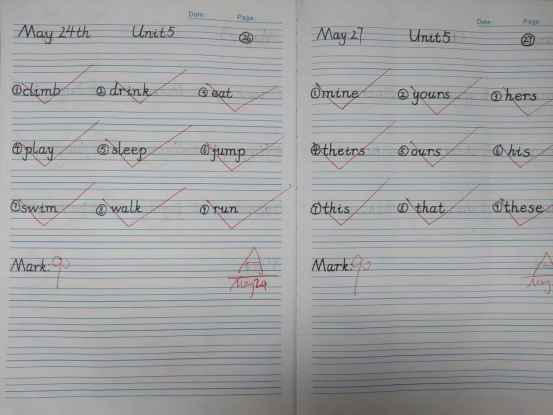 Date: Page:
May 24th Unit5 26
①climb ②drink ③eat
④play ⑤sleep ⑥jump
⑦swim ⑧walk ⑨run
Mark: 90 A
May 24
Date: Page:
May 27 Unit5 27
①mine ②yours ③hers
④theirs ⑤ours ⑥his
⑦this ⑧that ⑨these
Mark: 90 A
May